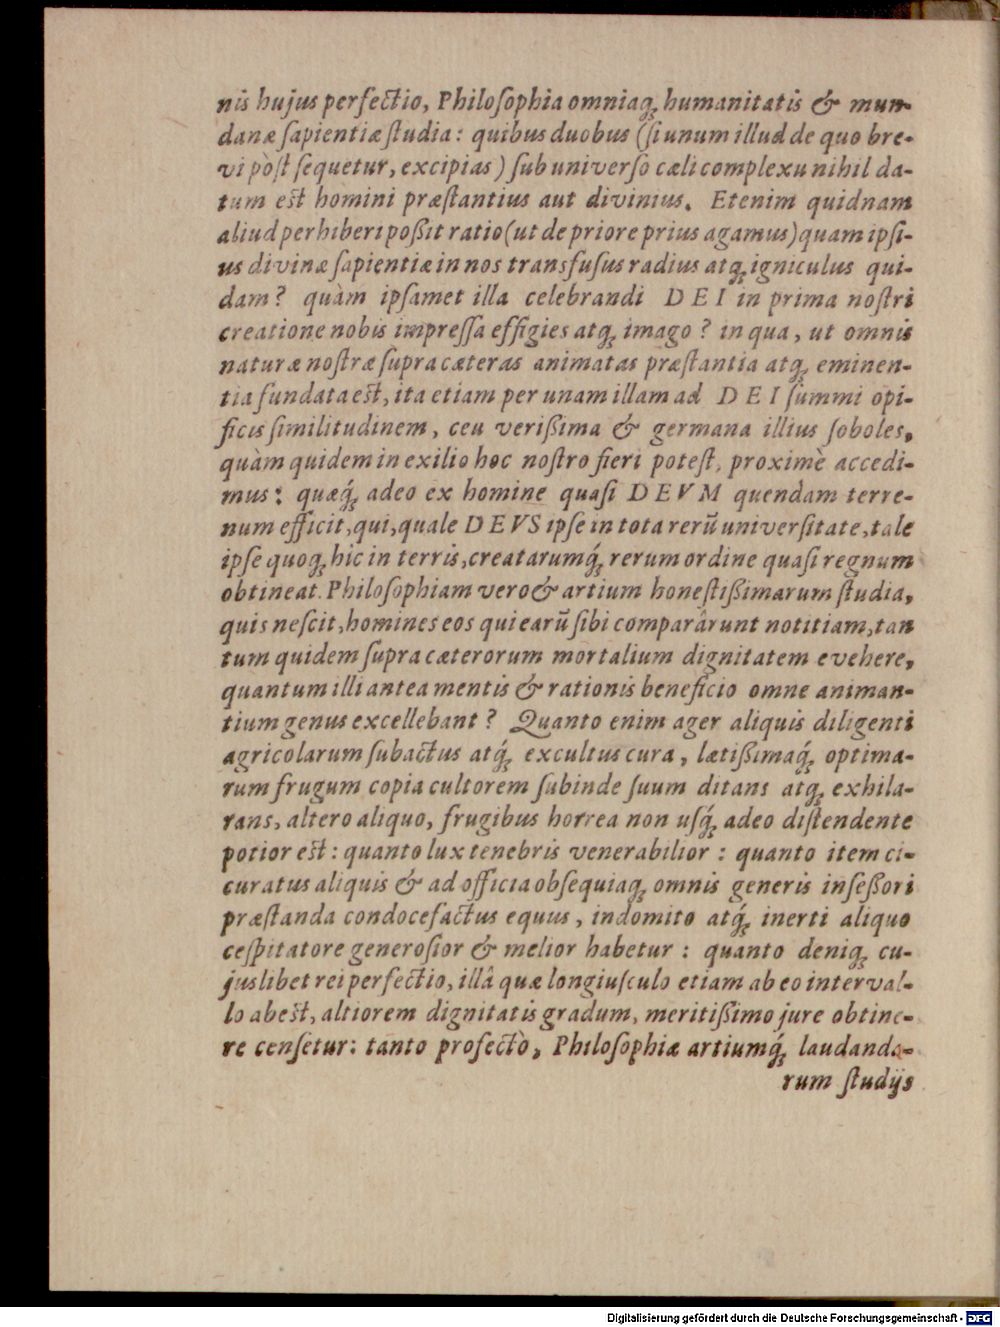 nis hujus perfectio, Philosophia omniaq; humanitatis & mun-
danæ sapientiæ studia: quibus duobus (si unum illud de quo bre-
vi pòst sequetur, excipias) sub universo cæli complexu nihil da-
tum est homini præstantius aut divinius. Etenim quidnam
aliud perhiberi poßit ratio (ut de priore prius agamus) quam ipsi-
us divinæ sapientiæ in nos transfusus radius atq; igniculus qui-
dam? quàm ipsamet illa celebrandi DEI in prima nostri
creatione nobis impressa effigies atq; imago? in qua, ut omnis
naturæ nostræ supra cæteras animatas præstantia atq; eminen-
tia fundata est, ita etiam per unam illam ad DEI summi opi-
ficis similitudinem, ceu verißima & germana illius soboles,
quàm quidem in exilio hoc nostro fieri potest, proximè accedi-
mus: quæq́; adeo ex homine quasi DEVM quendam terre-
num efficit, qui, quale DEVS ipse in tota rerū universitate, tale
ipse quoq; hic in terris, creatarumq́; rerum ordine quasi regnum
obtineat. Philosophiam vero & artium honestißimarum studia,
quis nescit, homines eos qui earū sibi comparârunt notitiam, tan
tum quidem supra cæterorum mortalium dignitatem evehere,
quantum illi antea mentis & rationis beneficio omne animan-
tium genus excellebant? Quanto enim ager aliquis diligenti
agricolarum subactus atq́; excultus cura, lætißimaq́; optima-
rum frugum copia cultorem subinde suum ditans atq; exhila-
rans, altero aliquo, frugibus horrea non usq́; adeo distendente
potior est: quanto lux tenebris venerabilior: quanto item ci-
curatus aliquis & ad officia obsequiaq; omnis generis inseßori
præstanda condocefactus equus, indomito atq́; inerti aliquo
cespitatore generosior & melior habetur: quanto deniq; cu-
juslibet rei perfectio, illâ quæ longiusculo etiam ab eo interval-
lo abest, altiorem dignitatis gradum, meritißimo jure obtine-
re censetur: tanto profectò, Philosophiæ artiumq́; laudanda-
rum studijs
Digitalisierung gefördert durch die Deutsche Forschungsgemeinschaft - DFG